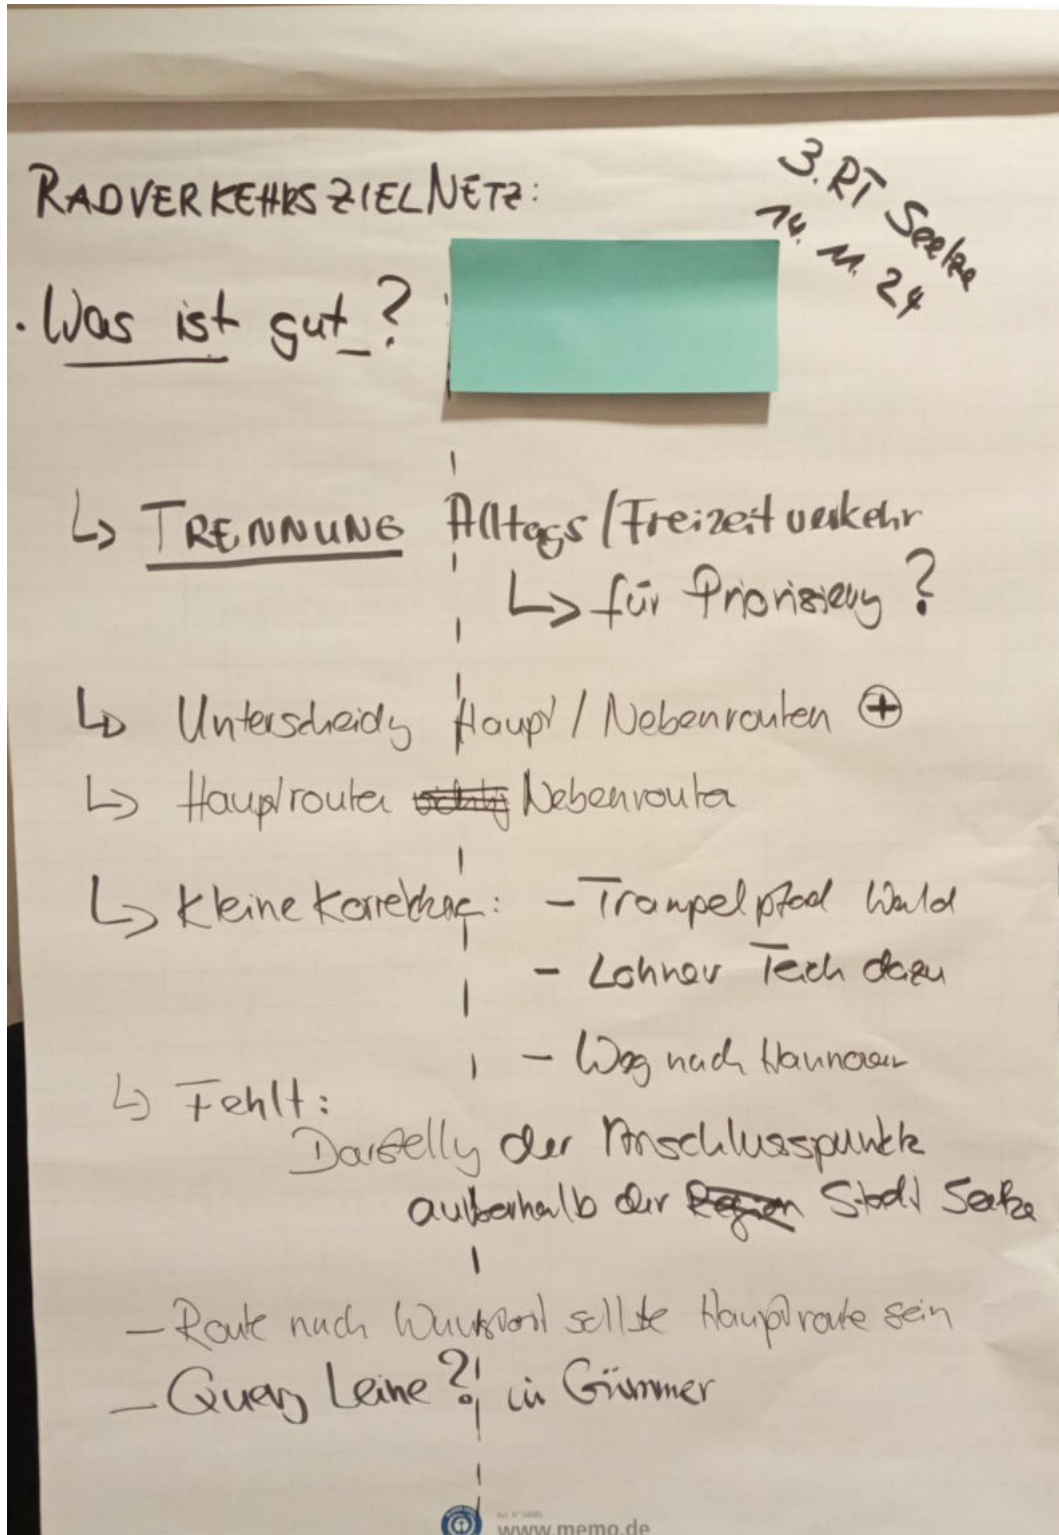 RADVERKEHRSZIELNETZ:
3. RT Seelze
14. 11. 24
. Was ist gut_?
↳ TRENNUNG Alltags/Freizeitverkehr
↳ für Priorisierg ?
↳ Unterscheidg Haupt / Nebenrouten ⊕
↳ Hauptrouten Nebenrouten
↳ Kleine Korrektur: - Trampelpfad Wald
- Lohner Teich dazu
- Weg nach Hannover
↳ Fehlt:
Darstellg der Anschlusspunkte
außerhalb der Region Stadt Seelze
- Route nach Wunstorf sollte Hauptroute sein
- Querg Leine ? in Gümmer
www.memo.de